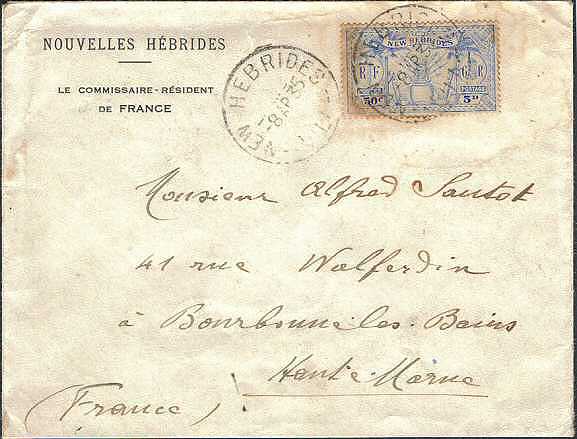 NOUVELLES HÉBRIDES
LE COMMISSAIRE-RÉSIDENT
DE FRANCE
NEW HEBRIDES
8 AP 35
NEW HEBRIDES
RF
GR
50c
POSTAGE
5d
HEBRIDES
8 AP 35
Monsieur Alfred Sautot
41 rue Walferdin
à Bourbonne-les-Bains
Haute Marne
(France)